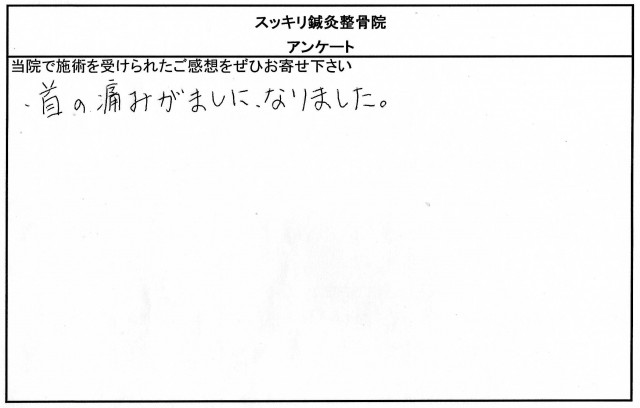 スッキリ鍼灸整骨院
アンケート
当院で施術を受けられたご感想をぜひお寄せ下さい
・首の痛みがましになりました。